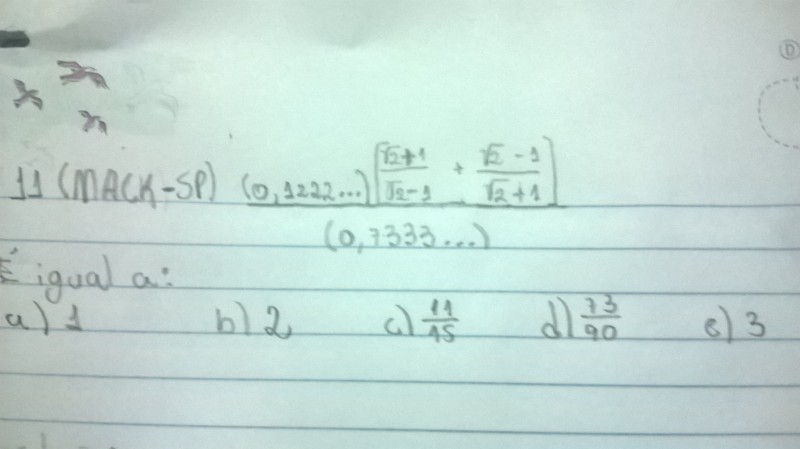 11 (MACK-SP) (0,1222...) [(√2+1)/(√2-1) + (√2-1)/(√2+1)]
(0,7333...)
É igual a:
a) 1 b) 2 c) 11/15 d) 73/90 e) 3